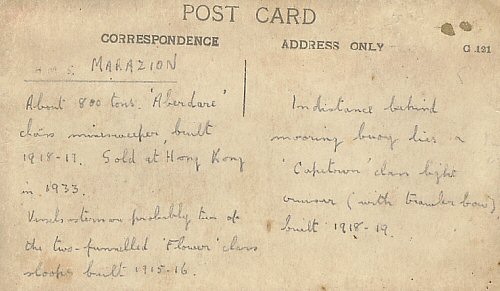 POST CARD
CORRESPONDENCE
ADDRESS ONLY
G.121
H.M.S. MARAZION
About 800 tons. 'Aberdare'
class minesweeper built
1918-17. Sold at Hong Kong
in 1933.
Vessels astern are probably two of
the two-funnelled 'Flower' class
sloops built 1915-16.
In distance behind
mooring buoy lies a
'Capetown' class light
cruiser (with trawler bow)
built 1918-19.